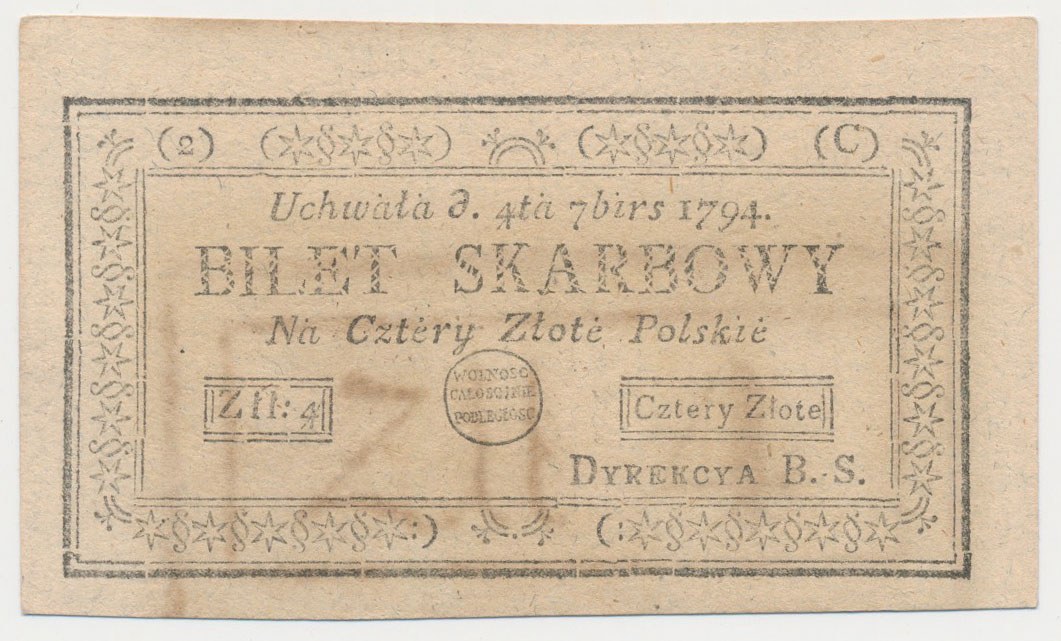 (2) (C)
Uchwáłá d. 4tá 7birs 1794.
BILET SKARBOWY
Ná Cztéry Złoté Polskié
Złł: 4
WOLNOSC
CAŁOSC, NIE
PODLEGŁOSC
Cztery Złote
DYREKCYA B. S.